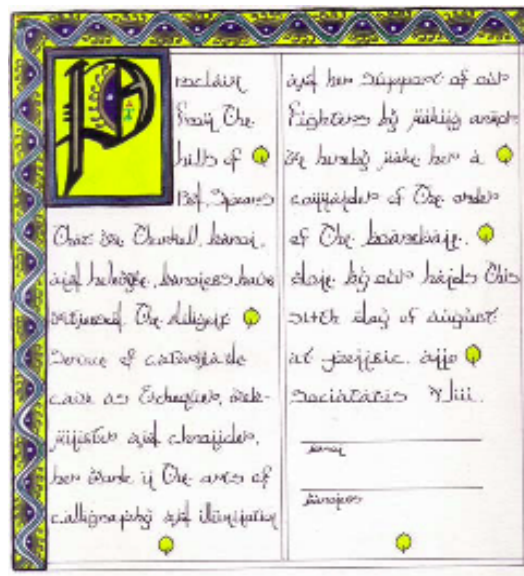 Proclaim
from the
hills of
Spears
That we baron,
and baroness have
witnessed the diligent
service of de
as Exchequer, web-
minister and chronicler,
her work in the arts of
calligraphy and illumination
and her support of our
fighters by making
we hereby make her a
of the order
of the
done by our hands this
sixth day of august
at pennsic, anno
societatis xliii.
baron
baroness